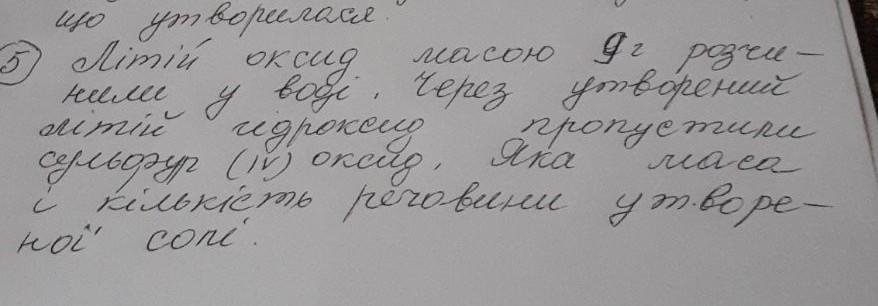 що утворилася.
5 Літій оксид масою 9г розчи-
нили у воді. Через утворений
літій гідроксид пропустили
сульфур (IV) оксид. Яка маса
і кількість речовини утворе-
ної солі.